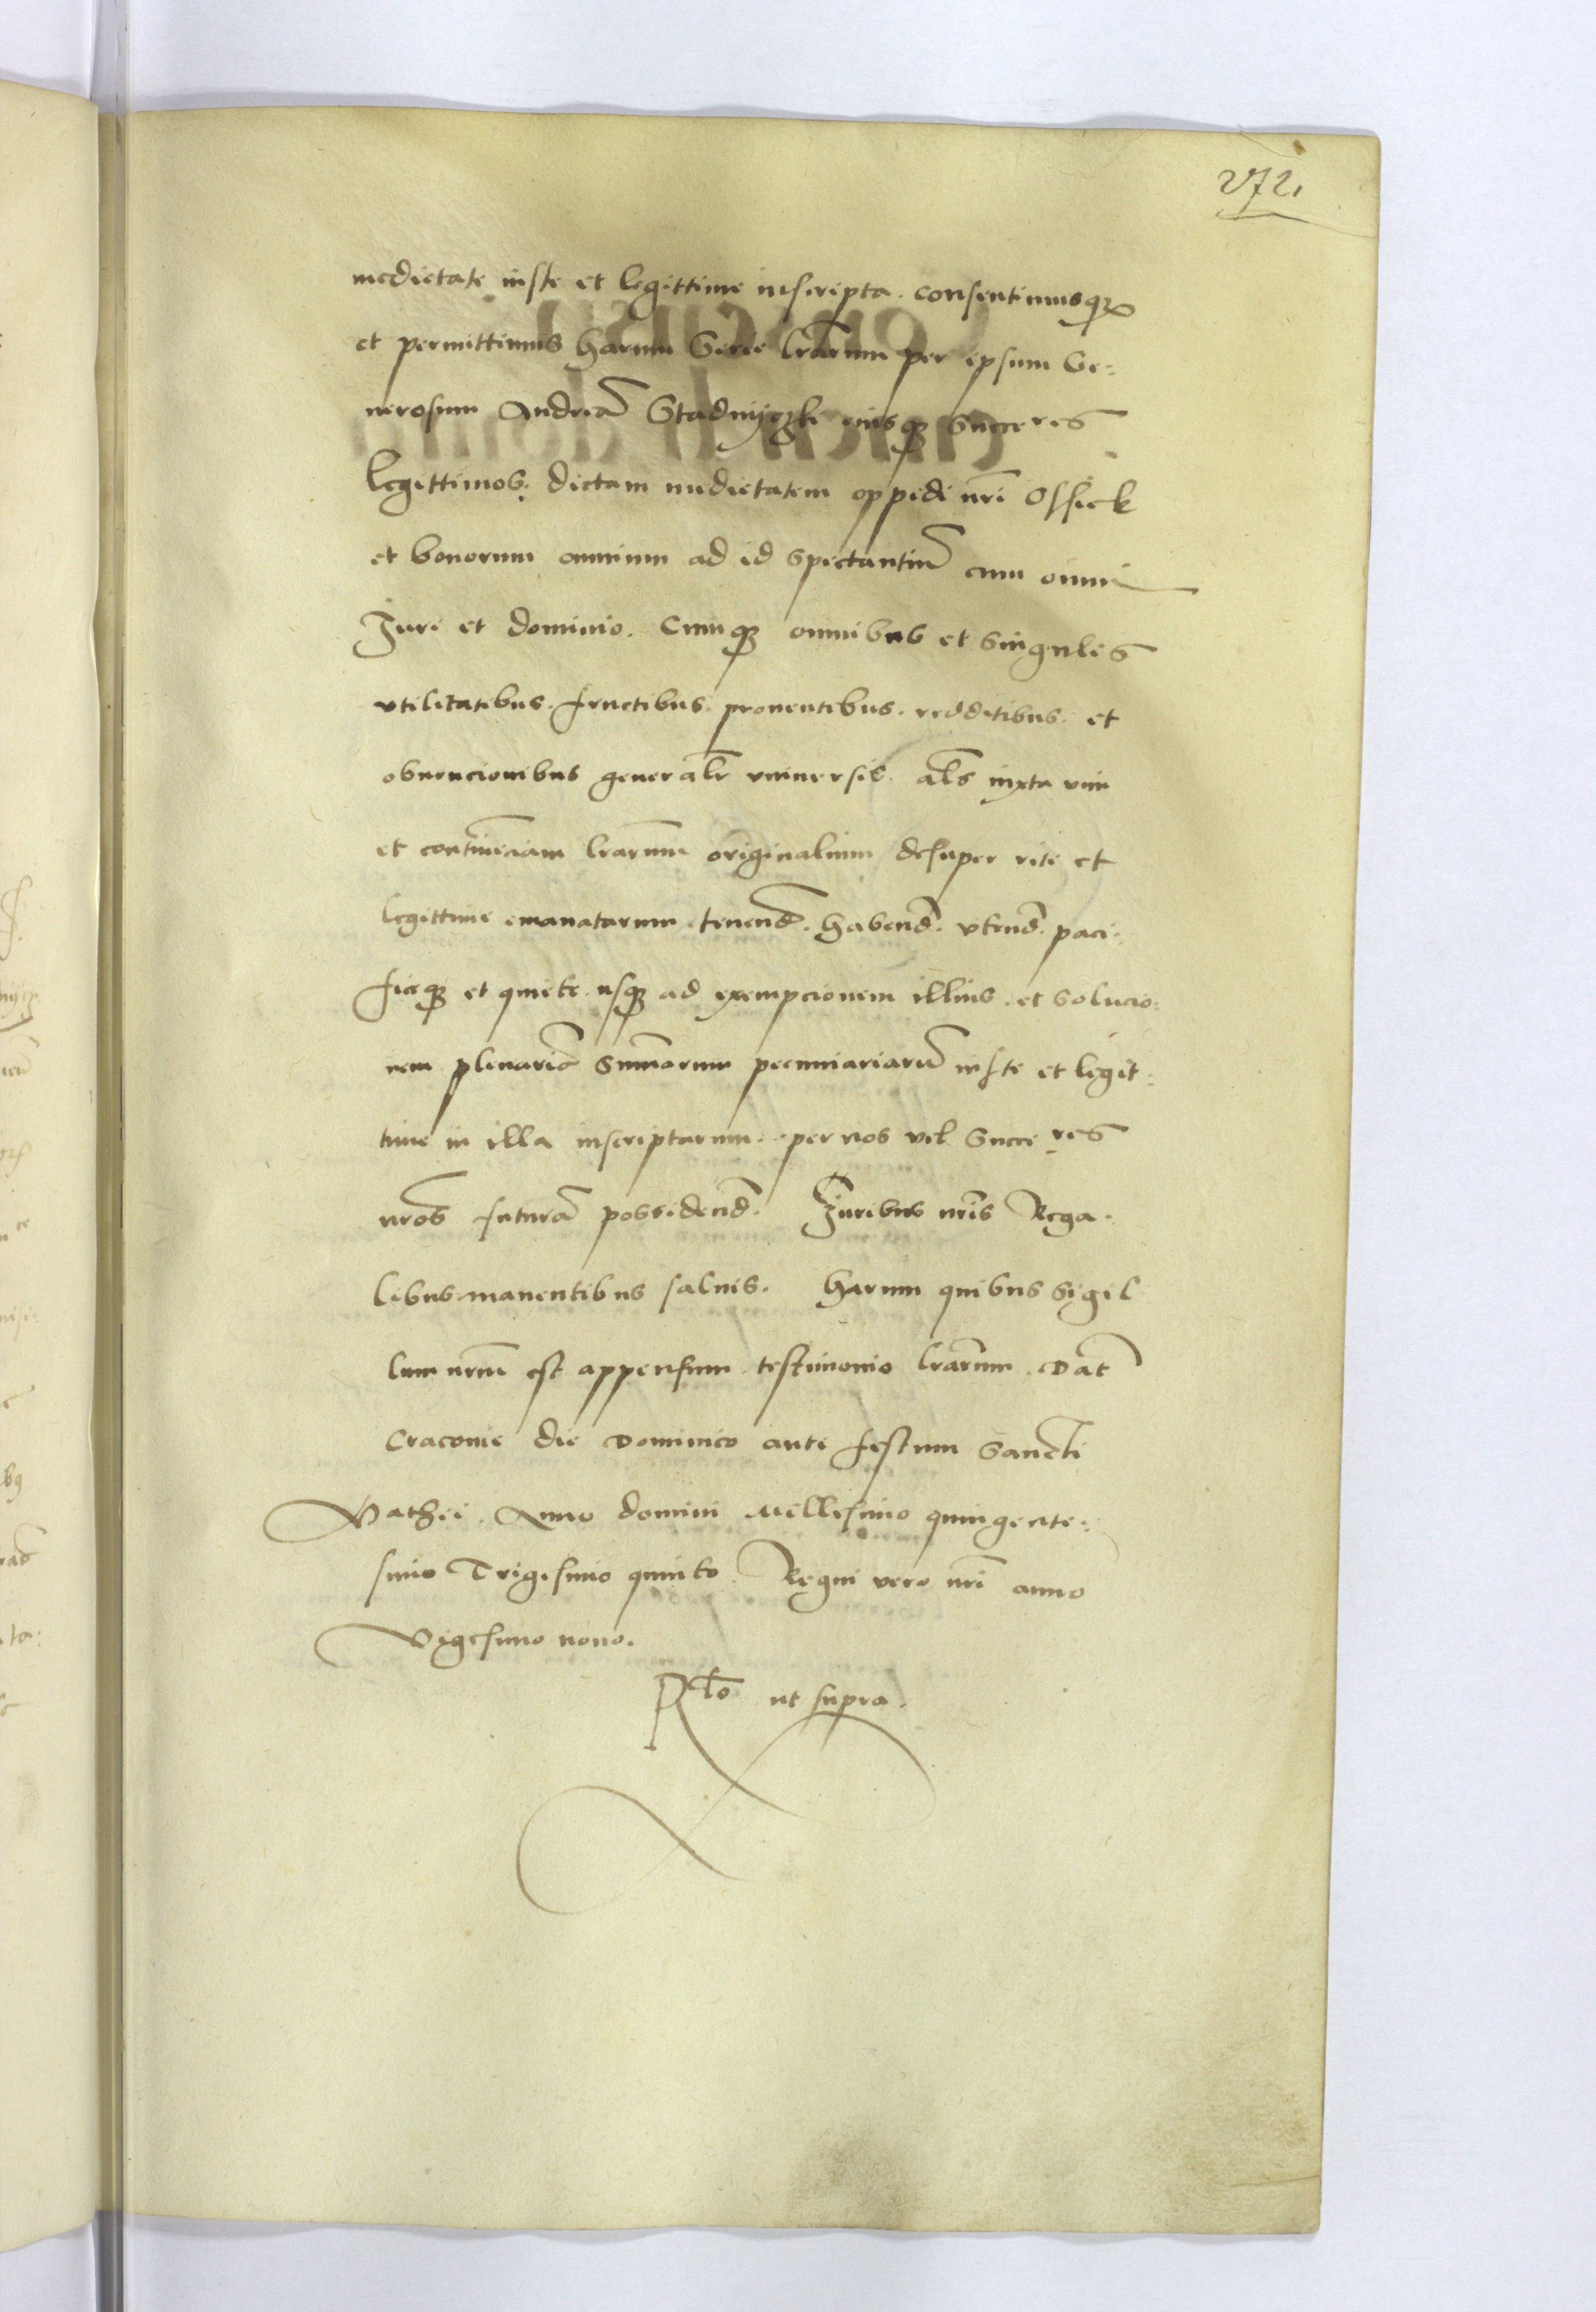 272
medietate iuste et legittime inscripta. consentimusq3
et permittimus harum Serie lr̃arum per ipsum Ge-
nerosum Andreã Stadnyczki eiusq3 Succeres
legittimos. dictam medietatem oppidi nr̃i Ossiek
et bonorum omnium ad id spectantiũ cum omni
Jure et dominio. Cumq3 omnibus et singulis
vtilitatibus. fructibus. prouentibus. redditibus. et
obuencionibus generalr̃ vniuersis. als̃ iuxta vim
et contineñciam lr̃arum originalium desuper rite et
legittime emanatarum. tenend̃. habend̃. vtend̃. paci-
ficeq3 et quiete usq3 ad exempcionem illius. et solucio-
nem plenariã Sum̃arum pecuniariarũ iuste et legit-
time in illa inscriptarum. per nos vel Succeres
nr̃os futurã possidend̃. Juribus nr̃is Rega-
libus manentibus saluis. Harum quibus sigil
lum nr̃um est appensum testimonio lr̃arum. Dat̃
Cracouie die Dominico ante festum Sancti
Mathei. Anno domini Millesimo quingente-
simo Trigesimo quinto. Regni vero nr̃i anno
Vigesimo nono.
Rl̃o ut supra.